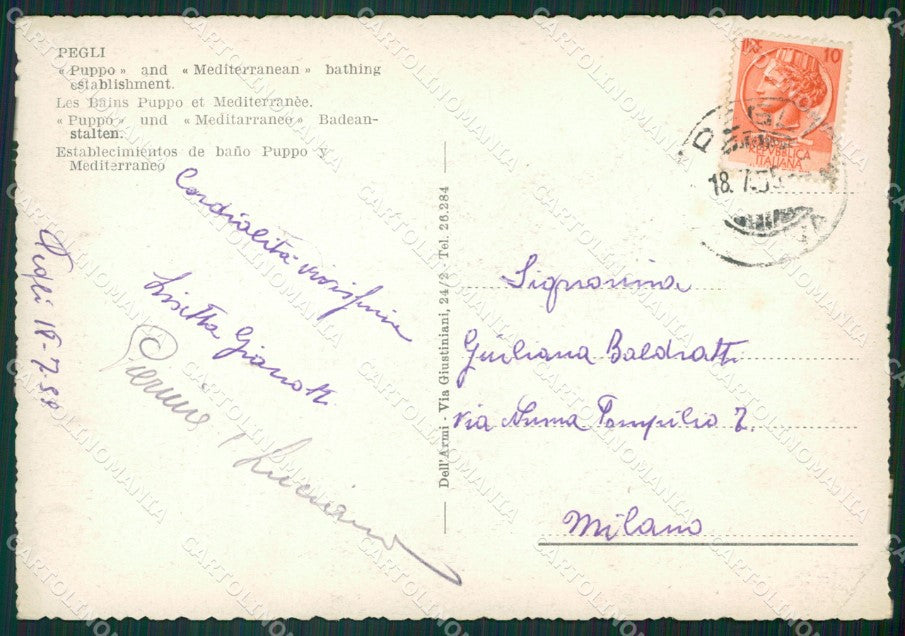 PEGLI
« Puppo » and « Mediterranean » bathing
establishment.
Les Bains Puppo et Mediterranèe.
« Puppo » und « Meditarraneo » Badean-
stalten.
Establecimientos de baño Puppo y
Mediterraneo
Cordialità vivissime
Lisetta Gianotti
Pierino, Luciano
Pegli 18-7-55
Dell'Armi - Via Giustiniani, 24/2 Tel. 26.284
10
REPUBBLICA
ITALIANA
PEGLI
18.7.55
Signorina
Giuliana Baldratti
via Numa Pompilio 2.
Milano
CARTOLINOMANIA